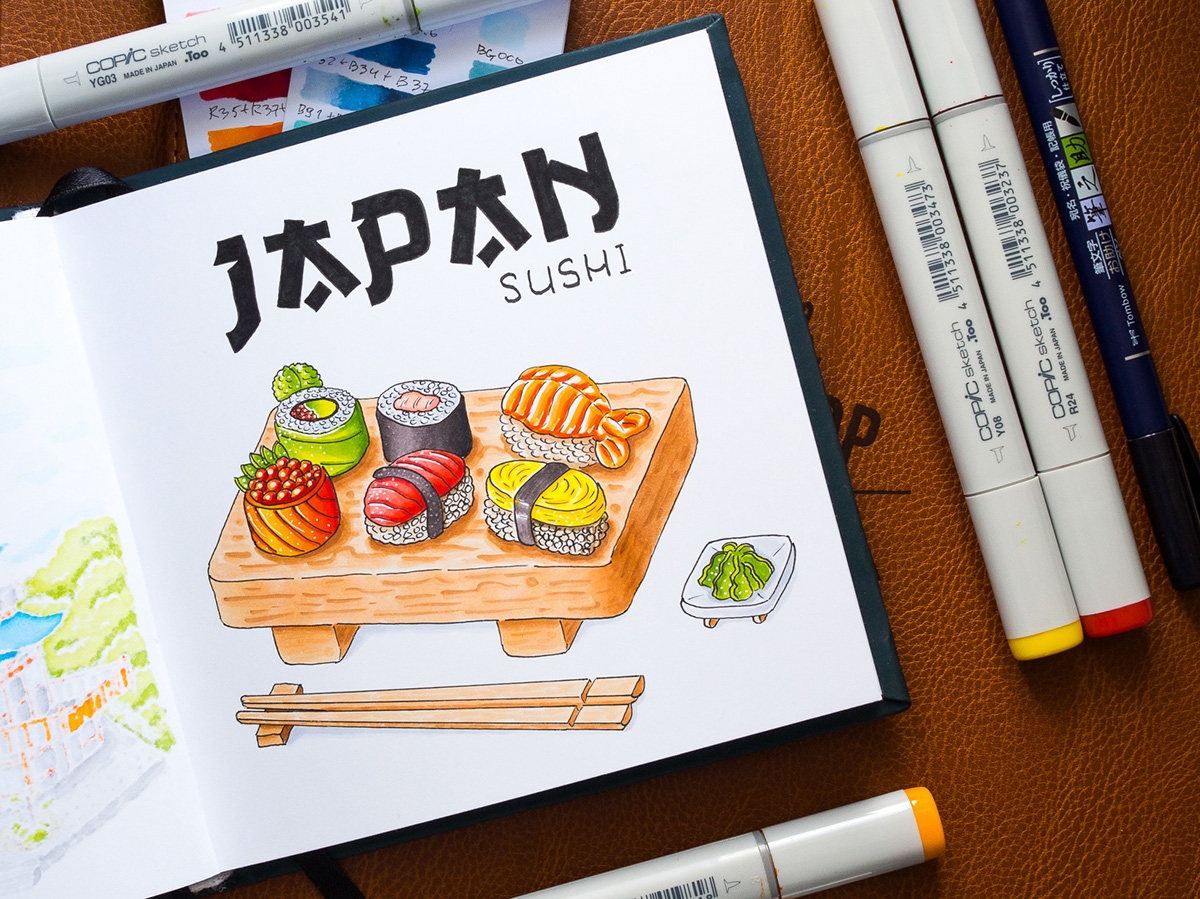 JAPAN
SUSHI
COPIC sketch
YG03 MADE IN JAPAN .Too
4 511338 003541
R35+R37+
B34 + B37
B91
BG000
COPIC sketch
Y08 MADE IN JAPAN .Too
4 511338 003473
COPIC sketch
R24 MADE IN JAPAN .Too
4 511338 003237
しっかり
仕立て
宛名・祝儀袋・記帳用
筆之助
筆文字
お助け
Tombow
OP